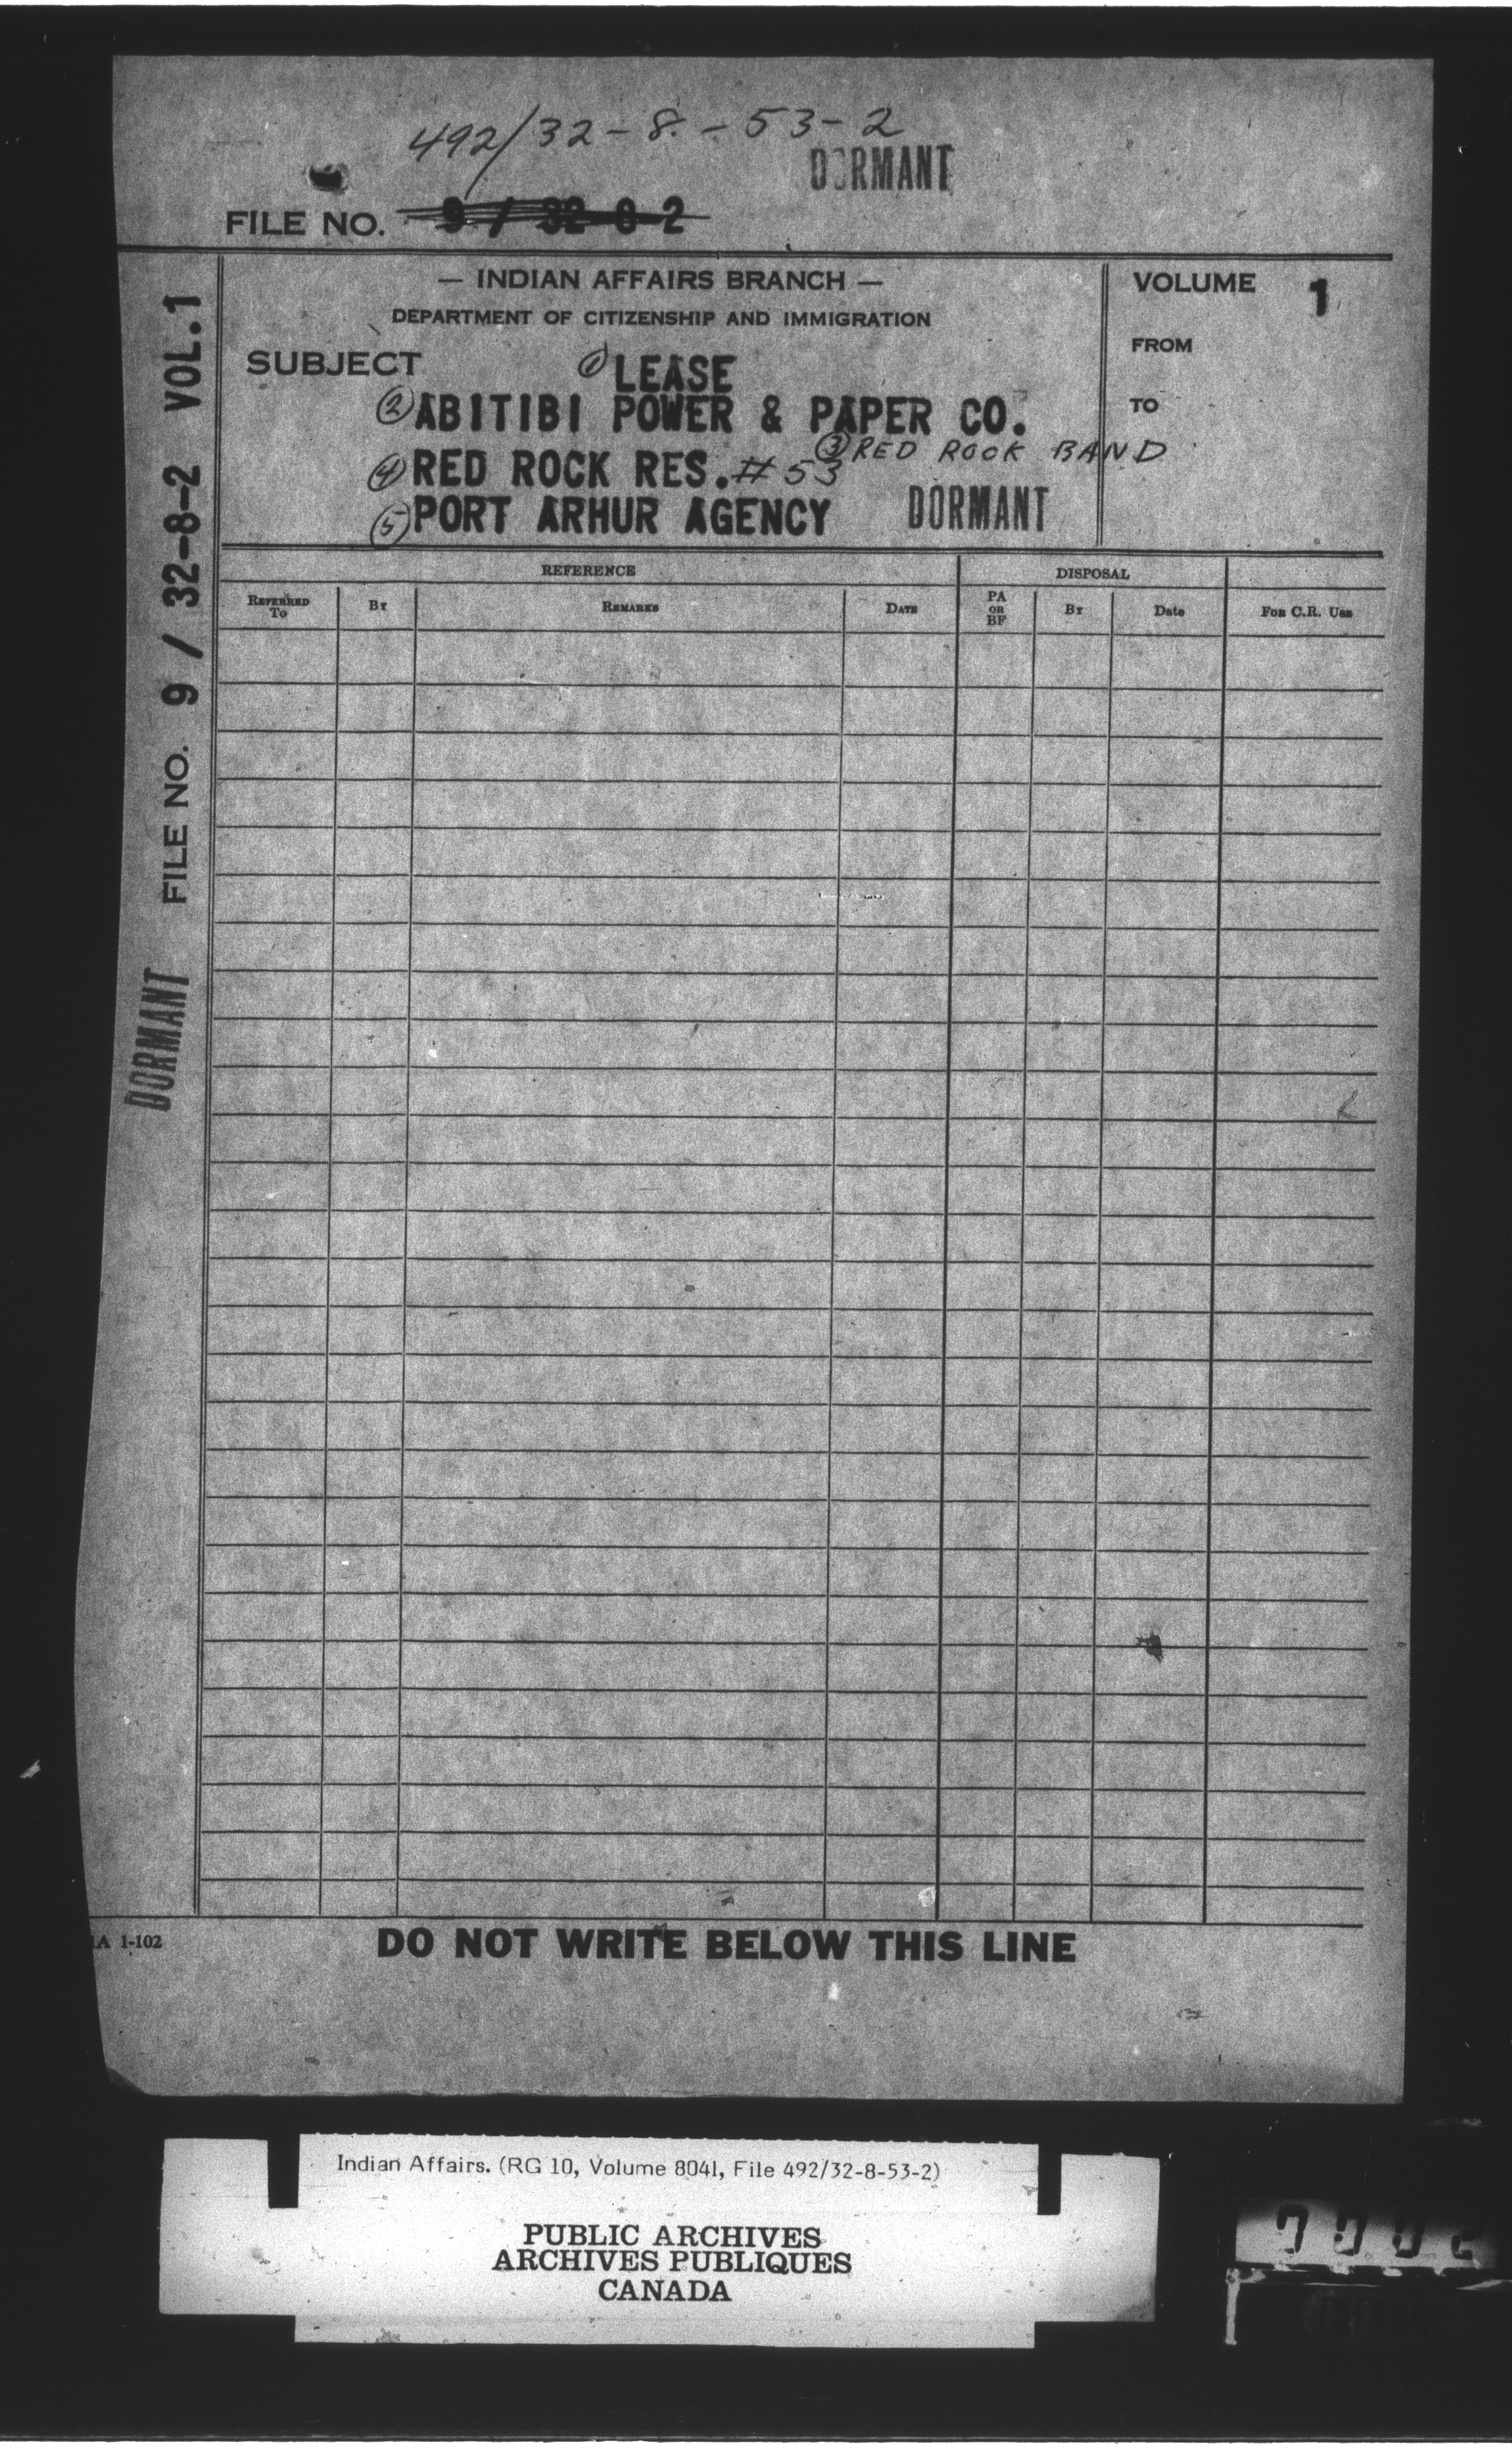 492/32-8-53-2
DORMANT
FILE NO. 9 / 32-8-2
— INDIAN AFFAIRS BRANCH —
DEPARTMENT OF CITIZENSHIP AND IMMIGRATION
VOLUME 1
FROM
TO
SUBJECT
① LEASE
② ABITIBI POWER & PAPER CO.
③ RED ROCK BAND
④ RED ROCK RES. # 53
⑤ PORT ARHUR AGENCY
DORMANT
FILE NO. 9 / 32-8-2 VOL.1
DORMANT
REFERENCE
DISPOSAL
REFERRED TO
BY
REMARKS
DATE
PA OR BF
BY
Date
FOR C.R. USE
IA 1-102
DO NOT WRITE BELOW THIS LINE
Indian Affairs. (RG 10, Volume 8041, File 492/32-8-53-2)
PUBLIC ARCHIVES
ARCHIVES PUBLIQUES
CANADA